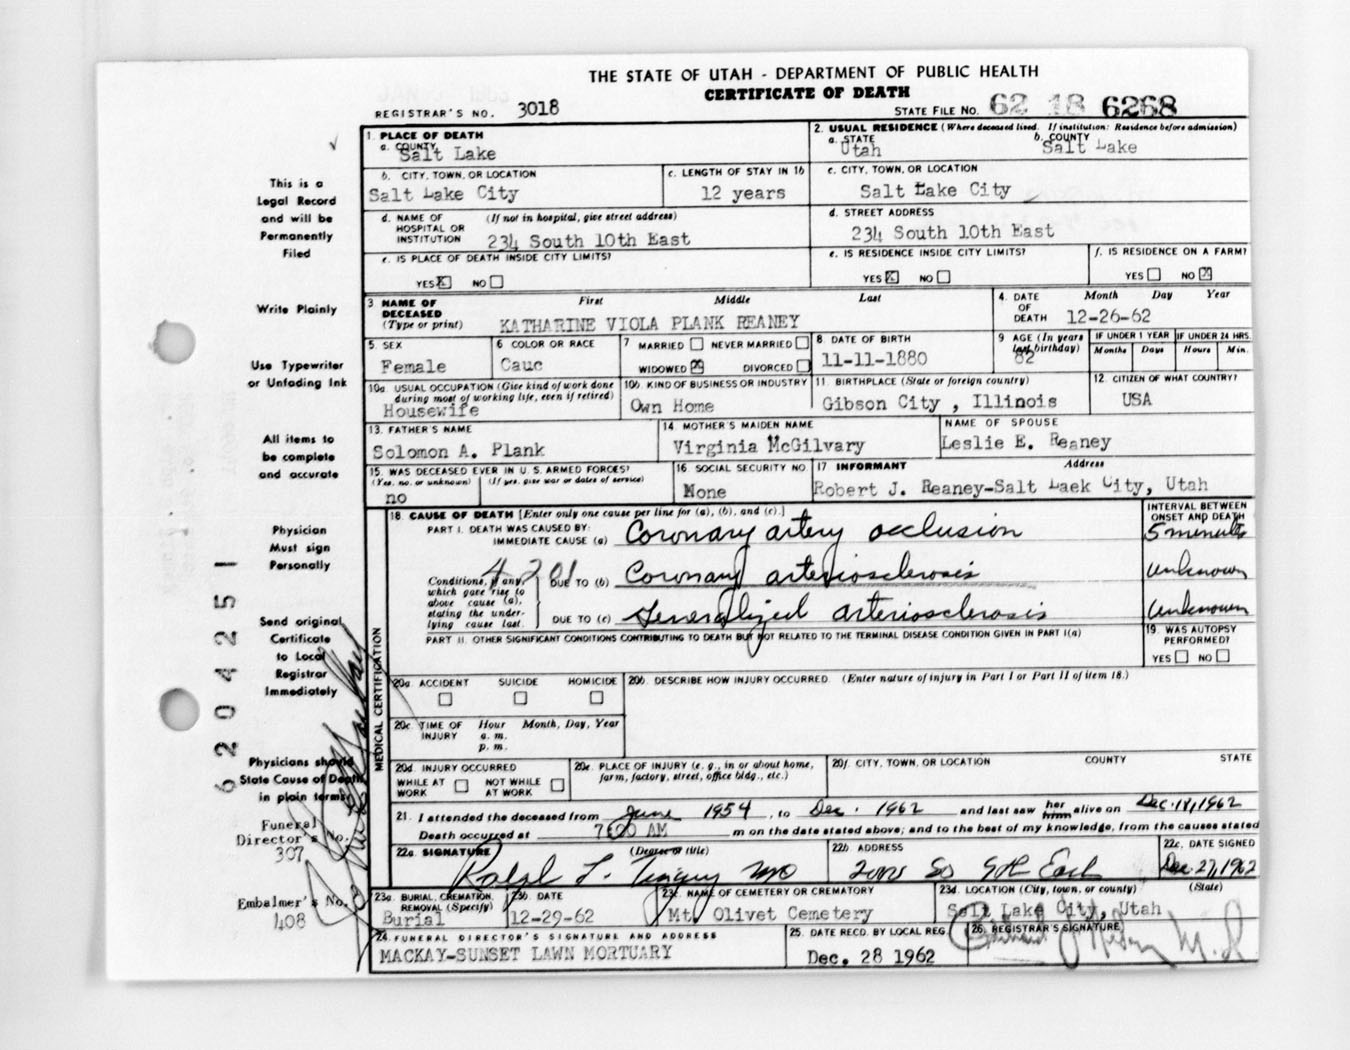 THE STATE OF UTAH - DEPARTMENT OF PUBLIC HEALTH
CERTIFICATE OF DEATH
REGISTRAR'S NO. 3018
STATE FILE NO. 62 18 6268
1. PLACE OF DEATH
a. COUNTY
Salt Lake
2. USUAL RESIDENCE (Where deceased lived. If institution: Residence before admission)
a. STATE
Utah
b. COUNTY
Salt Lake
b. CITY, TOWN, OR LOCATION
Salt Lake City
c. LENGTH OF STAY IN 1b
12 years
c. CITY, TOWN, OR LOCATION
Salt Lake City
d. NAME OF HOSPITAL OR INSTITUTION (If not in hospital, give street address)
234 South 10th East
d. STREET ADDRESS
234 South 10th East
e. IS PLACE OF DEATH INSIDE CITY LIMITS?
YES X NO
e. IS RESIDENCE INSIDE CITY LIMITS?
YES X NO
f. IS RESIDENCE ON A FARM?
YES NO X
3 NAME OF DECEASED (Type or print)
First Middle Last
KATHARINE VIOLA PLANK REANEY
4. DATE OF DEATH Month Day Year
12-26-62
5. SEX
Female
6 COLOR OR RACE
Cauc
7 MARRIED NEVER MARRIED
WIDOWED X DIVORCED
8 DATE OF BIRTH
11-11-1880
9 AGE (In years last birthday)
82
IF UNDER 1 YEAR
Months Days
IF UNDER 24 HRS.
Hours Min.
10a. USUAL OCCUPATION (Give kind of work done during most of working life, even if retired)
Housewife
10b. KIND OF BUSINESS OR INDUSTRY
Own Home
11. BIRTHPLACE (State or foreign country)
Gibson City , Illinois
12. CITIZEN OF WHAT COUNTRY?
USA
13. FATHER'S NAME
Solomon A. Plank
14. MOTHER'S MAIDEN NAME
Virginia McGilvary
NAME OF SPOUSE
Leslie E. Reaney
15. WAS DECEASED EVER IN U. S. ARMED FORCES?
(Yes, no, or unknown) (If yes, give war or dates of service)
no
16. SOCIAL SECURITY NO.
None
17 INFORMANT Address
Robert J. Reaney-Salt Laek City, Utah
18. CAUSE OF DEATH [Enter only one cause per line for (a), (b), and (c).]
INTERVAL BETWEEN ONSET AND DEATH
PART I. DEATH WAS CAUSED BY:
IMMEDIATE CAUSE (a) Coronary artery occlusion
5 minutes
4201
Conditions, if any, which gave rise to above cause (a), stating the underlying cause last.
DUE TO (b) Coronary arteriosclerosis
unknown
DUE TO (c) Generalized arteriosclerosis
unknown
PART II. OTHER SIGNIFICANT CONDITIONS CONTRIBUTING TO DEATH BUT NOT RELATED TO THE TERMINAL DISEASE CONDITION GIVEN IN PART I(a)
19. WAS AUTOPSY PERFORMED?
YES NO
MEDICAL CERTIFICATION
20a. ACCIDENT SUICIDE HOMICIDE
20b. DESCRIBE HOW INJURY OCCURRED. (Enter nature of injury in Part I or Part II of item 18.)
20c. TIME OF INJURY Hour Month, Day, Year
a. m.
p. m.
20d. INJURY OCCURRED
WHILE AT WORK NOT WHILE AT WORK
20e. PLACE OF INJURY (e. g., in or about home, farm, factory, street, office bldg., etc.)
20f. CITY, TOWN, OR LOCATION COUNTY STATE
21. I attended the deceased from June 1954, to Dec. 1962 and last saw her him alive on Dec. 18, 1962
Death occurred at 7:00 AM m on the date stated above; and to the best of my knowledge, from the causes stated
22a. SIGNATURE (Degree or title)
Ralph L. MD
22b. ADDRESS
So 9th East
22c. DATE SIGNED
Dec. 27, 1962
23a. BURIAL, CREMATION, REMOVAL (Specify)
Burial
23b. DATE
12-29-62
23c. NAME OF CEMETERY OR CREMATORY
Mt. Olivet Cemetery
23d. LOCATION (City, town, or county) (State)
Salt Lake City, Utah
24. FUNERAL DIRECTOR'S SIGNATURE AND ADDRESS
MACKAY-SUNSET LAWN MORTUARY
25. DATE RECD. BY LOCAL REG.
Dec. 28 1962
26. REGISTRAR'S SIGNATURE
This is a
Legal Record
and will be
Permanently
Filed
Write Plainly
Use Typewriter
or Unfading Ink
All items to
be complete
and accurate
Physician
Must sign
Personally
Send original
Certificate
to Local
Registrar
Immediately
Physicians should
State Cause of Death
in plain terms
Funeral
Director's No.
307
Embalmer's No.
408
6204251